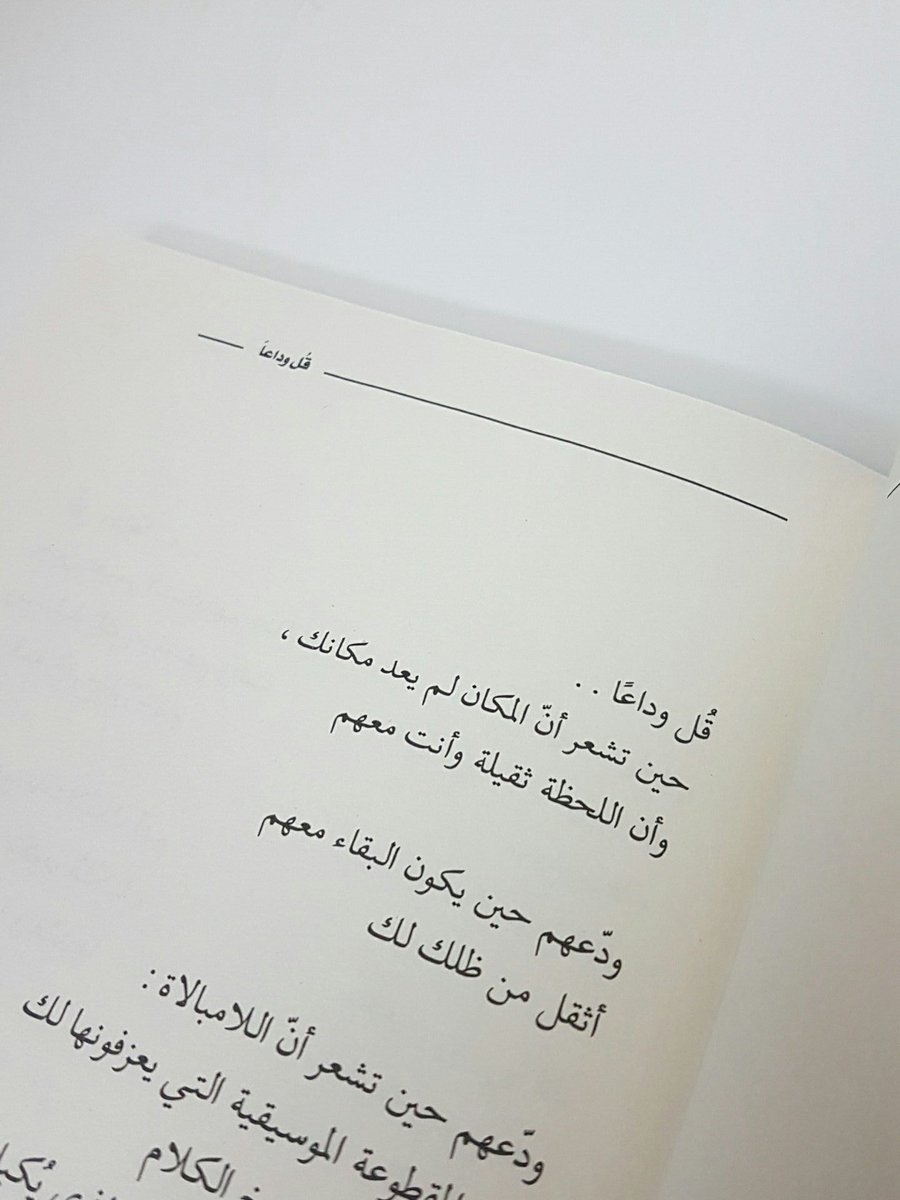 قُل وداعاً
قُل وداعًا ..
حين تشعر أنّ المكان لم يعد مكانك ،
وأن اللحظة ثقيلة وأنت معهم
ودّعهم حين يكون البقاء معهم
أثقل من ظلك لك
ودّعهم حين تشعر أنّ اللامبالاة :
المقطوعة الموسيقية التي يعزفونها لك
الكلام